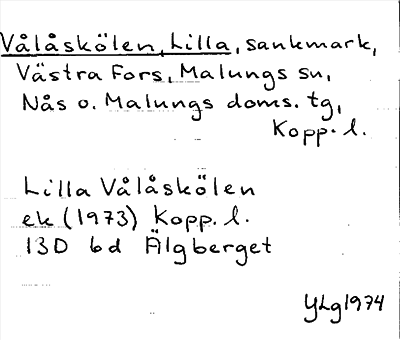 Vålåskölen, Lilla, sankmark,
Västra Fors, Malungs sn,
Nås o. Malungs doms. tg,
Kopp. l.
Lilla Vålåskölen
ek (1973) Kopp. l.
13D 6d Älgberget
YLg 1974